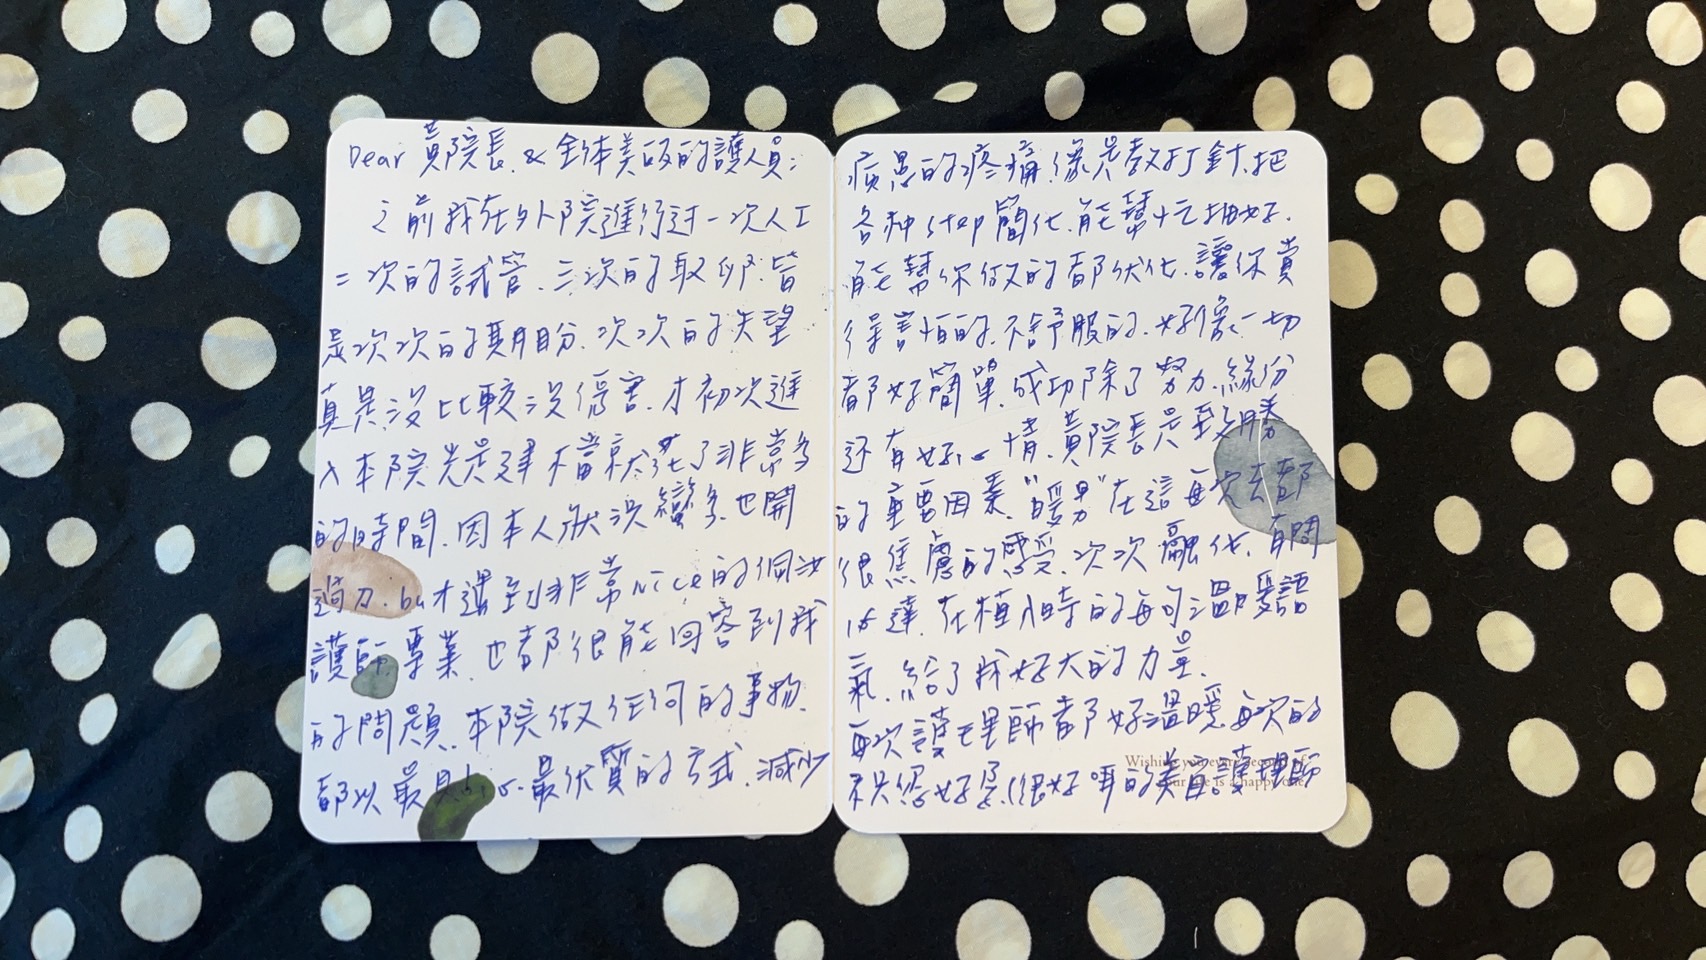 Dear 黃院長 & 全体美叹的護人員：
之前我在外院進行过一次人工
二次的試管、三次的取卵、皆
是次次的期盼、次次的失望
真是沒比較沒傷害、才初次進
入本院光是建檔就花了非常多
的時間、因本人狀況蠻多、也開
過刀、but 遇到非常nice的個決
護師、專業、也都很能回答到我
的問題、本院做任何的事物、
都以最貝心、最优質的方式、減少
病患的疼痛、像是教打針、把
各种step簡化、能幫忙抽好、
能幫你做的都优化、讓你賞
得害怕的、不舒服的、好像一切
都好簡單、成功除了努力、緣份
还有好心情、黃院長是致勝
的重要因素、"暖男"在這每次去都
很焦慮的感受、次次融化、有問
必達、在植入時的每句溫暖語
氣、給了我好大的力量、
每次護理師都好溫暖、每次的
不只您好多、很好呵的美眉護理師